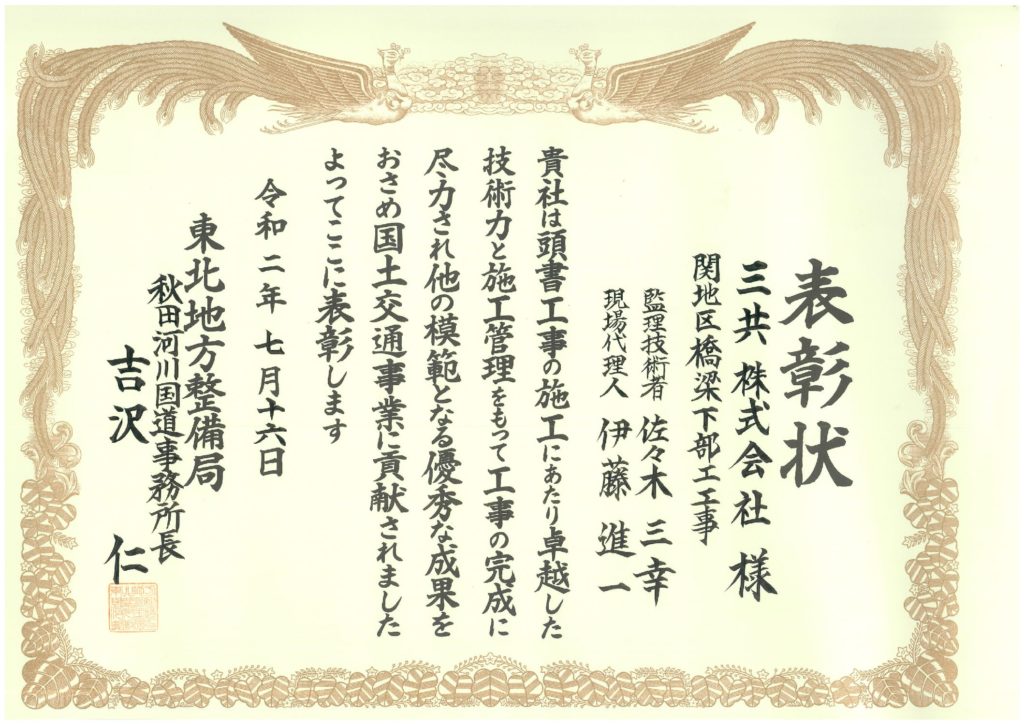 表彰状
三共株式会社 様
関地区橋梁下部工工事
監理技術者 佐々木 三幸
現場代理人 伊藤 進一
貴社は頭書工事の施工にあたり卓越した
技術力と施工管理をもって工事の完成に
尽力され他の模範となる優秀な成果を
おさめ国土交通事業に貢献されました
よってここに表彰します
令和二年七月十六日
東北地方整備局
秋田河川国道事務所長
吉沢 仁